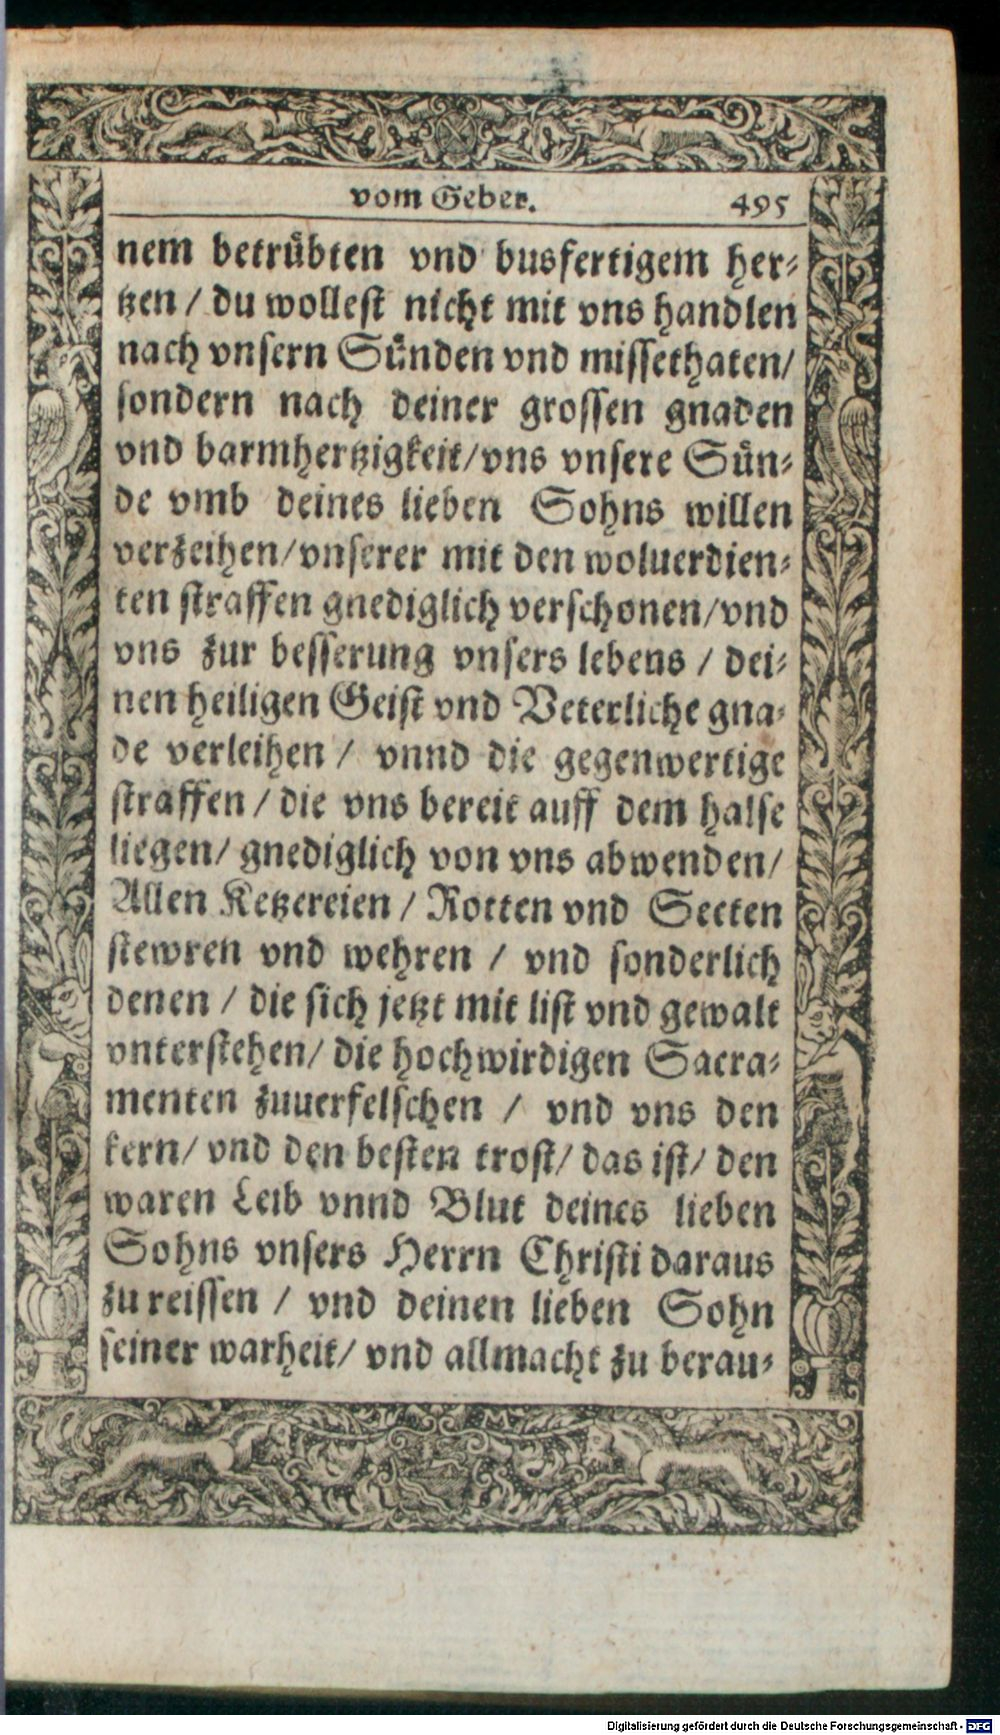 vom Gebet. 495
nem betrübten vnd busfertigem her-
tzen / du wollest nicht mit vns handlen
nach vnsern Sünden vnd missethaten/
sondern nach deiner grossen gnaden
vnd barmhertzigkeit/vns vnsere Sün-
de vmb deines lieben Sohns willen
verzeihen/vnserer mit den woluerdien-
ten straffen gnediglich verschonen/vnd
vns zur besserung vnsers lebens / dei-
nen heiligen Geist vnd Veterliche gna-
de verleihen / vnnd die gegenwertige
straffen / die vns bereit auff dem halse
liegen/ gnediglich von vns abwenden/
Allen Ketzereien / Rotten vnd Secten
stewren vnd wehren / vnd sonderlich
denen / die sich jetzt mit list vnd gewalt
vnterstehen/ die hochwirdigen Sacra-
menten zuuerfelschen / vnd vns den
kern/ vnd den besten trost/ das ist/ den
waren Leib vnnd Blut deines lieben
Sohns vnsers Herrn Christi daraus
zu reissen / vnd deinen lieben Sohn
seiner warheit/ vnd allmacht zu berau-
Digitalisierung gefördert durch die Deutsche Forschungsgemeinschaft - DFG